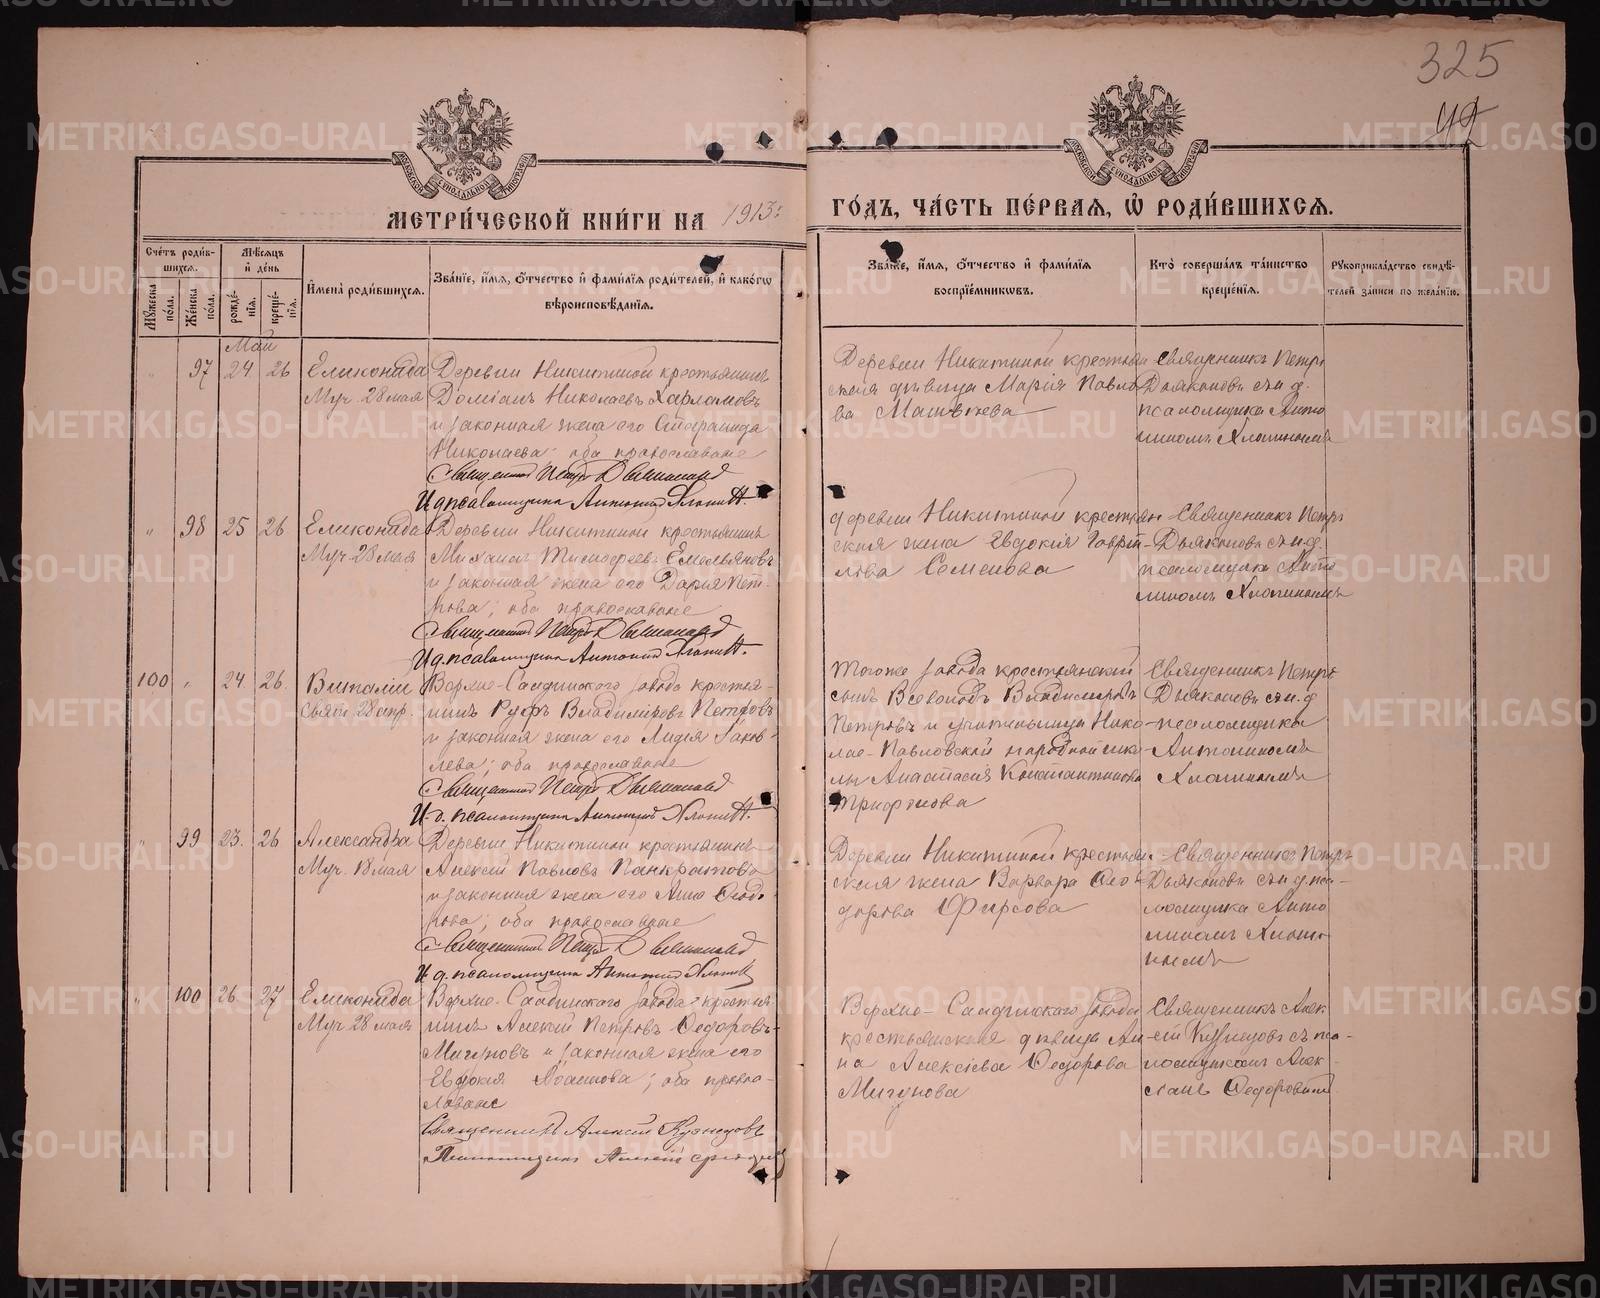 325
42
МОСКОВСКОЙ СѴНОДАЛЬНОЙ ТИПОГРАФІИ
МОСКОВСКОЙ СѴНОДАЛЬНОЙ ТИПОГРАФІИ
МЕТРИ́ЧЕСКОЙ КНИ́ГИ НА 1913:
ГО́ДЪ, ЧА́СТЬ ПЕ́РВАЯ, Ѡ҆ РОДИ́ВШИХСѦ.
Сче́тъ роди́в-
шихсѧ.
Мꙋ́жеска по́ла.
Же́нска по́ла.
Мѣ́сѧцъ
и҆ де́нь
рожде́-
нїѧ.
креще́-
нїѧ.
И҆мена̀ роди́вшихсѧ.
Зва́нїе, и҆́мѧ, ѻ҆́тчество и҆ фами́лїѧ роди́телей, и҆ како́гѡ
вѣроисповѣ́данїѧ.
Зва́нїе, и҆́мѧ, ѻ҆́тчество и҆ фами́лїѧ
воспрїе́мникѡвъ.
Кто̀ соверша́лъ та́инство
креще́нїѧ.
Рꙋкоприкла́дство свидѣ́-
телей за́писи по жела́нїю.
Май
" 97 24 26
Еликонида
Муч. 28 мая
Деревни Никитиной крестьянинъ
Доміанъ Николаевъ Харламовъ
и законная жена его Стефанида
Николаева; оба православные
Священникъ Петръ Дьяконовъ
И. д. псаломщика Антонинъ Хлопинъ.
Деревни Никитиной крестьян-
ская дѣвица Марія Павло-
ва Матвѣева
Священникъ Петръ
Дьяконовъ съ и. д.
псаломщика Анто
ниномъ Хлопинымъ
" 98 25 26
Еликонида
Муч. 28 мая
Деревни Никитиной крестьянинъ
Михаилъ Тимофеевъ Емельяновъ
и законная жена его Дарія Пет-
рова; оба православные
Священникъ Петръ Дьяконовъ
И. д. псаломщика Антонинъ Хлопинъ.
деревни Никитиной крестьян-
ская жена Евдокія Гаврі-
лова Семенова
Священникъ Петръ
Дьяконовъ съ и. д.
псаломщика Анто
ниномъ Хлопинымъ
100 " 24 26
Виталій
Свят. 28 апр.
Верхне-Салдинского завода крестья-
нинъ Руфъ Владиміровъ Петровъ
и законная жена его Лидія Іаков-
лева; оба православные
Священникъ Петръ Дьяконовъ
И. д. псаломщика Антонинъ Хлопинъ.
Тогоже завода крестьянскій
сынъ Всеволодъ Владиміровъ
Петровъ и учительница Нико-
лае-Павловской народной шко-
лы Анастасія Константинова
Трифонова
Священникъ Петръ
Дьяконовъ съ и. д
псаломщика
Антониномъ
Хлопинымъ
" 99 23. 26
Александра
Муч. 18 мая
Деревни Никитиной крестьянинъ
Алексій Павловъ Панкратовъ
и законная жена его Анна Ѳеодо-
рова; оба православные
Священникъ Петръ Дьяконовъ
И. д. псаломщика Антонинъ Хлопинъ
Деревни Никитиной крестьян-
ская жена Варвара Ѳео-
дорова Фирсова
Священникъ Петръ
Дьяконовъ съ и. д. пса-
ломщика Анто
ниномъ Хлопи-
нымъ
" 100 26 27
Еликонида
Муч. 28 мая
Верхне-Салдинского завода крестья-
нинъ Алексій Петровъ Ѳедоровъ-
Мигуновъ и законная жена его
Евдокія; оба право-
славные
Священникъ Алексій Кузнецовъ
Псаломщикъ Алексій
Верхне-Салдинского завода
крестьянская дѣвица Ан-
на Алексіева Ѳедорова
Мигунова
Священникъ Алек-
сій Кузнецовъ съ пса-
ломщикомъ Алек-